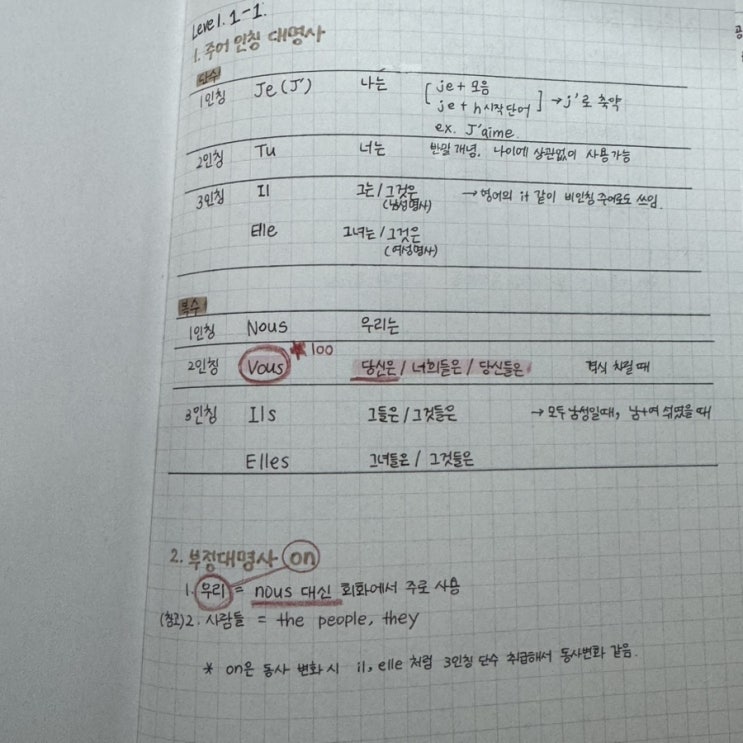 Level. 1-1.
1. 주어 인칭 대명사
단수
1인칭 Je (J') 나는 [ je + 모음
je + h시작 단어 ] → j'로 축약
ex. J'aime.
2인칭 Tu 너는 반말 개념. 나이에 상관없이 사용가능
3인칭 Il 그는 / 그것은 → 영어의 it 같이 비인칭 주어로도 쓰임.
(남성명사)
Elle 그녀는 / 그것은
(여성명사)
복수
1인칭 Nous 우리는
2인칭 Vous ★100 당신은 / 너희들은 / 당신들은 격식 차릴 때
3인칭 Ils 그들은 / 그것들은 → 모두 남성일때, 남+여 섞였을 때
Elles 그녀들은 / 그것들은
2. 부정대명사 on
1. 우리 = nous 대신 회화에서 주로 사용
(참고) 2. 사람들 = the people, they
* on은 동사 변화 시 il, elle 처럼 3인칭 단수 취급해서 동사변화 같음.